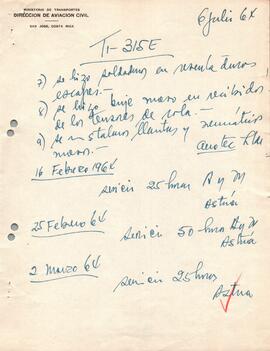 MINISTERIO DE TRANSPORTES
DIRECCION DE AVIACION CIVIL
SAN JOSE, COSTA RICA
6 Julio 64
TI-315E
7) se hizo soldadura en
escapes.-
8) se hizo buje nuevo en
de los tensores de cola.-
9) se instalaron llantas y neumáticos
nuevos.-
Aerotec Ltda
16 Febrero 1964
servicio 25 horas A y M
25 Febrero 64
servicio 50 horas A y M
2 Marzo 64
servicio 25 horas